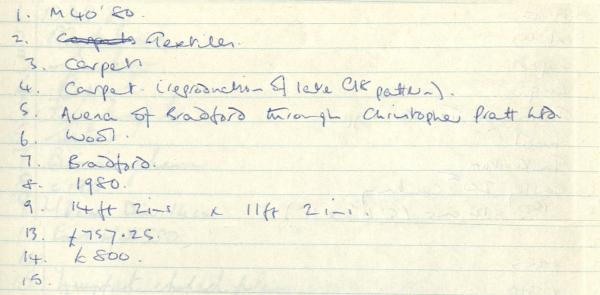 1. M40'80.
2. Carpets Textiles.
3. Carpet
4. Carpet (reproduction of late C18 pattern).
5. Avena of Bradford through Christopher Pratt Ltd
6. Wool.
7. Bradford.
8. 1980.
9. 14ft 2ins x 11ft 2ins.
13. £757.25
14. £800.
15.